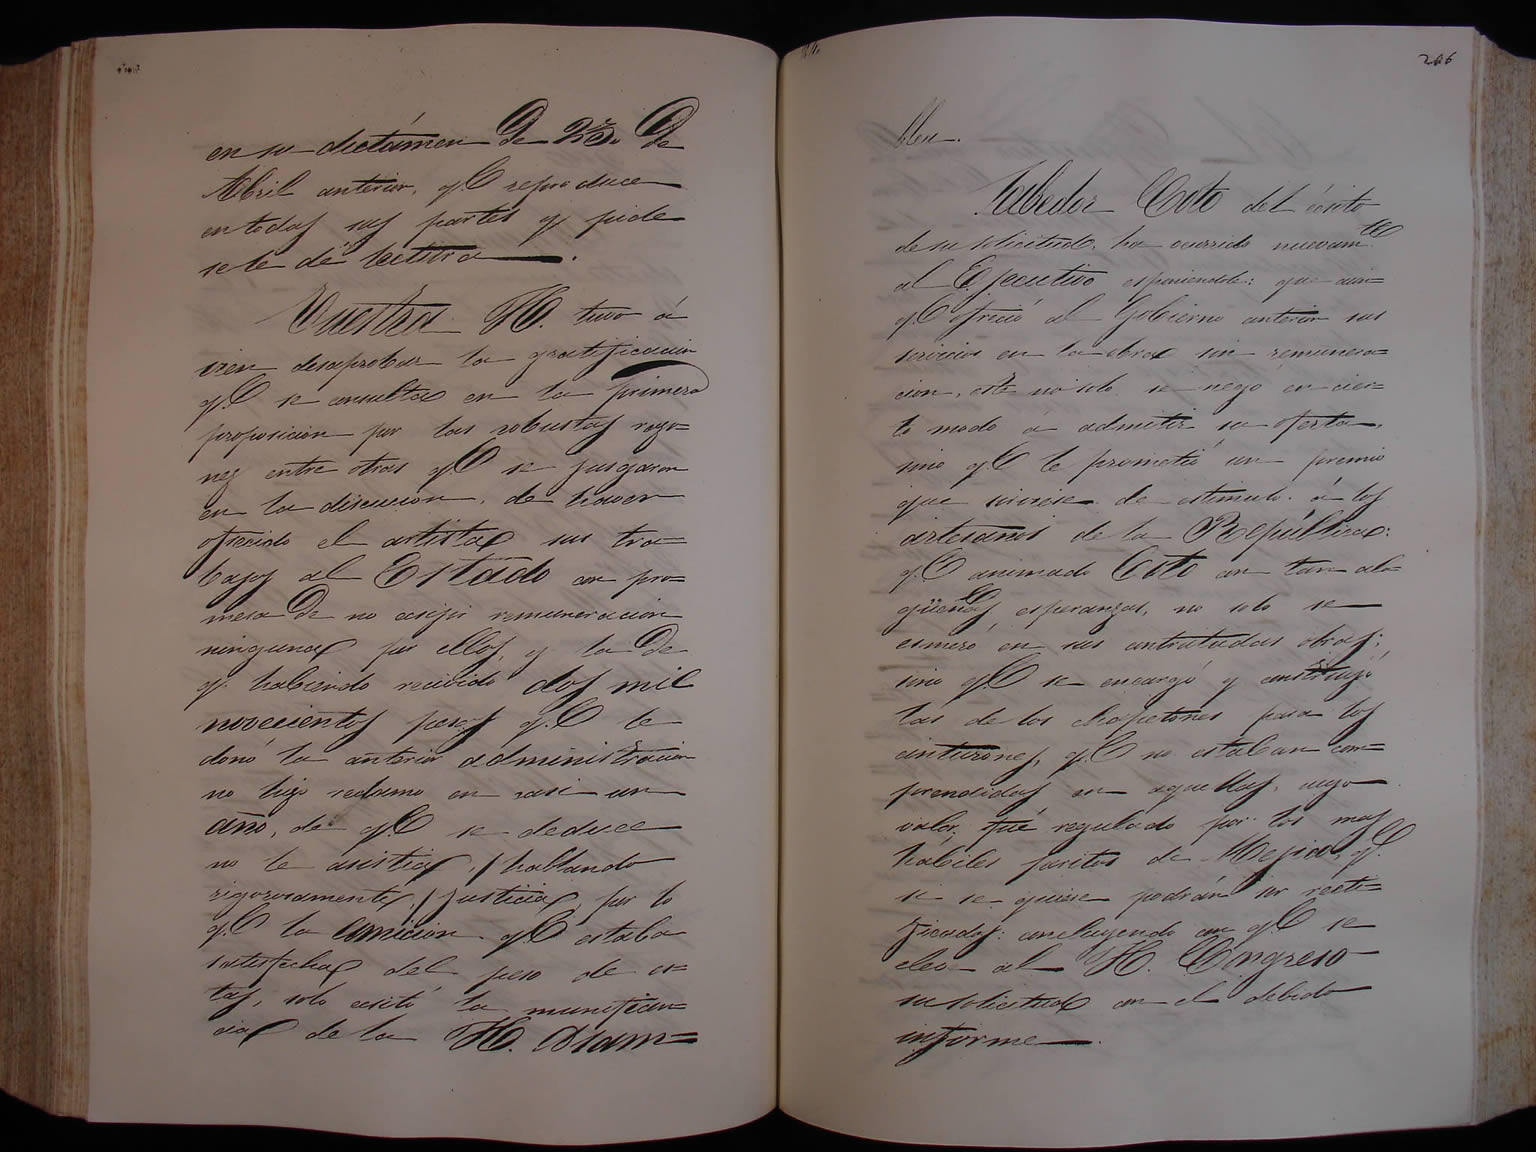 en su dictámen De 23. De
Abril anterior, q.e reproduce
en todas sus partes y pide
se le dé lectura.
Vuestra H. tuvo á
vien desaprobar la gratificacion
q.e se consulta en la primera
proposicion por las robustas razo=
nes entre otras q.e se juzgaron
en la discucion, de haver
ofrecido el artista sus tra=
bajos al Estado con pro=
mesa De no ecsijir remuneracion
ninguna por ellos, y la De
q. habiendo recivido dos mil
novecientos pesos q.e le
donó la anterior administracion
no hizo reclamo en casi un
año, de q.e se deduce
no le asistia, /hablando
rigorosamente,/ justicia, por lo
q.e la comicion q.e estaba
satisfecha del peso de es=
tas, solo ecsitó la munificen=
cia de la H. Asam=
266
blea.
Sabedor Coto del écsito
de su solicitud, ha ocurrido nuevam.te
al Ejecutivo esponiendole: que aun=
q.e ofreció al Gobierno anterior sus
servicios en la obra sin remunera=
cion, este no solo se negó en cier=
to modo á admitir su oferta,
sino q.e le prometió un premio
que sirviese de estimulo á los
artesanos de la República:
q.e animado Coto con tan ala=
güeñas esperanzas, no solo se
esmeró en sus contratadas obras;
sino q.e se encargó y construyó
las de los chapetones para los
cinturones, q.e no estaban com=
prendidas en aquellas, cuyo
valor fué regulado por los mas
habiles peritos de Mejia, q.e
si se quiere podrán ser recti=
ficados: concluyendo con q.e se
eleve al H. Congreso
su solicitud con el debido
informe.